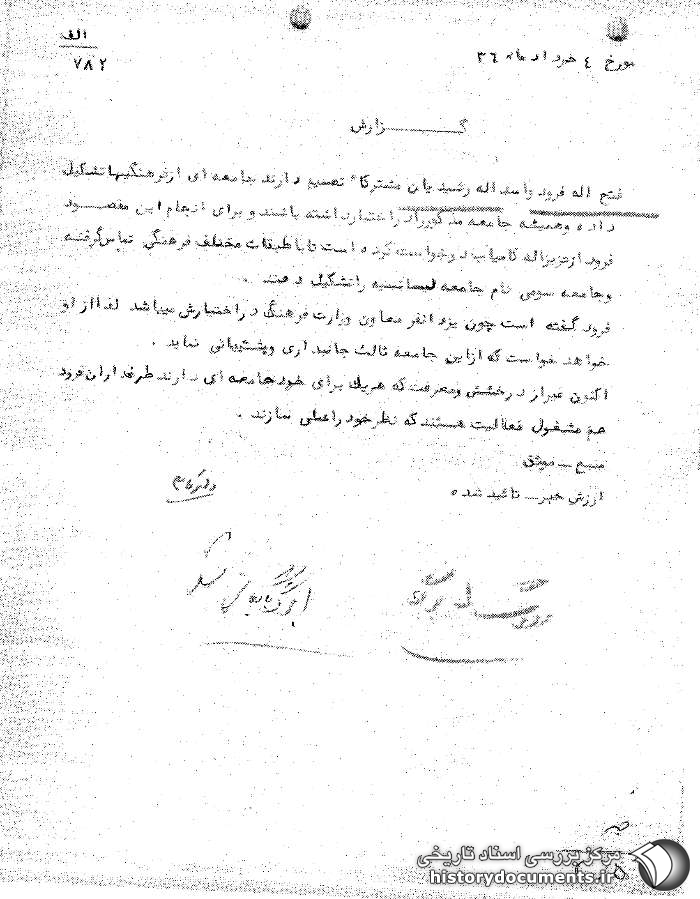 الف
۷۸۲
مورخ ٤ خرداد ماه ۳۶
گزارش
فتح اله فرود و اسداله رشیدیان مشترکاً تصمیم دارند جامعه ای از فرهنگیها تشکیل
داده و همیشه جامعه مذکور را در اختیار داشته باشند و برای انجام این مقصود
فرود از عزیزاله کامیاب درخواست کرده است تا با طبقات مختلف فرهنگی تماس گرفته
و جامعه سومی بنام جامعه لیسانسیه را تشکیل دهند .
فرود گفته است چون یزدانفر معاون وزارت فرهنگ در اختیارش میباشد لذا از او
خواهد خواست که از این جامعه ثالث جانبداری و پشتیبانی نماید .
اکنون غیر از درخشش و معرفت که هریک برای خود جامعه ای دارند طرفداران فرود
هم مشغول فعالیت هستند که نظر خود را عملی سازند .
منبع ــ موثق
ارزش خبر ــ تائید شده
مرکز بررسی اسناد تاریخی
historydocuments.ir